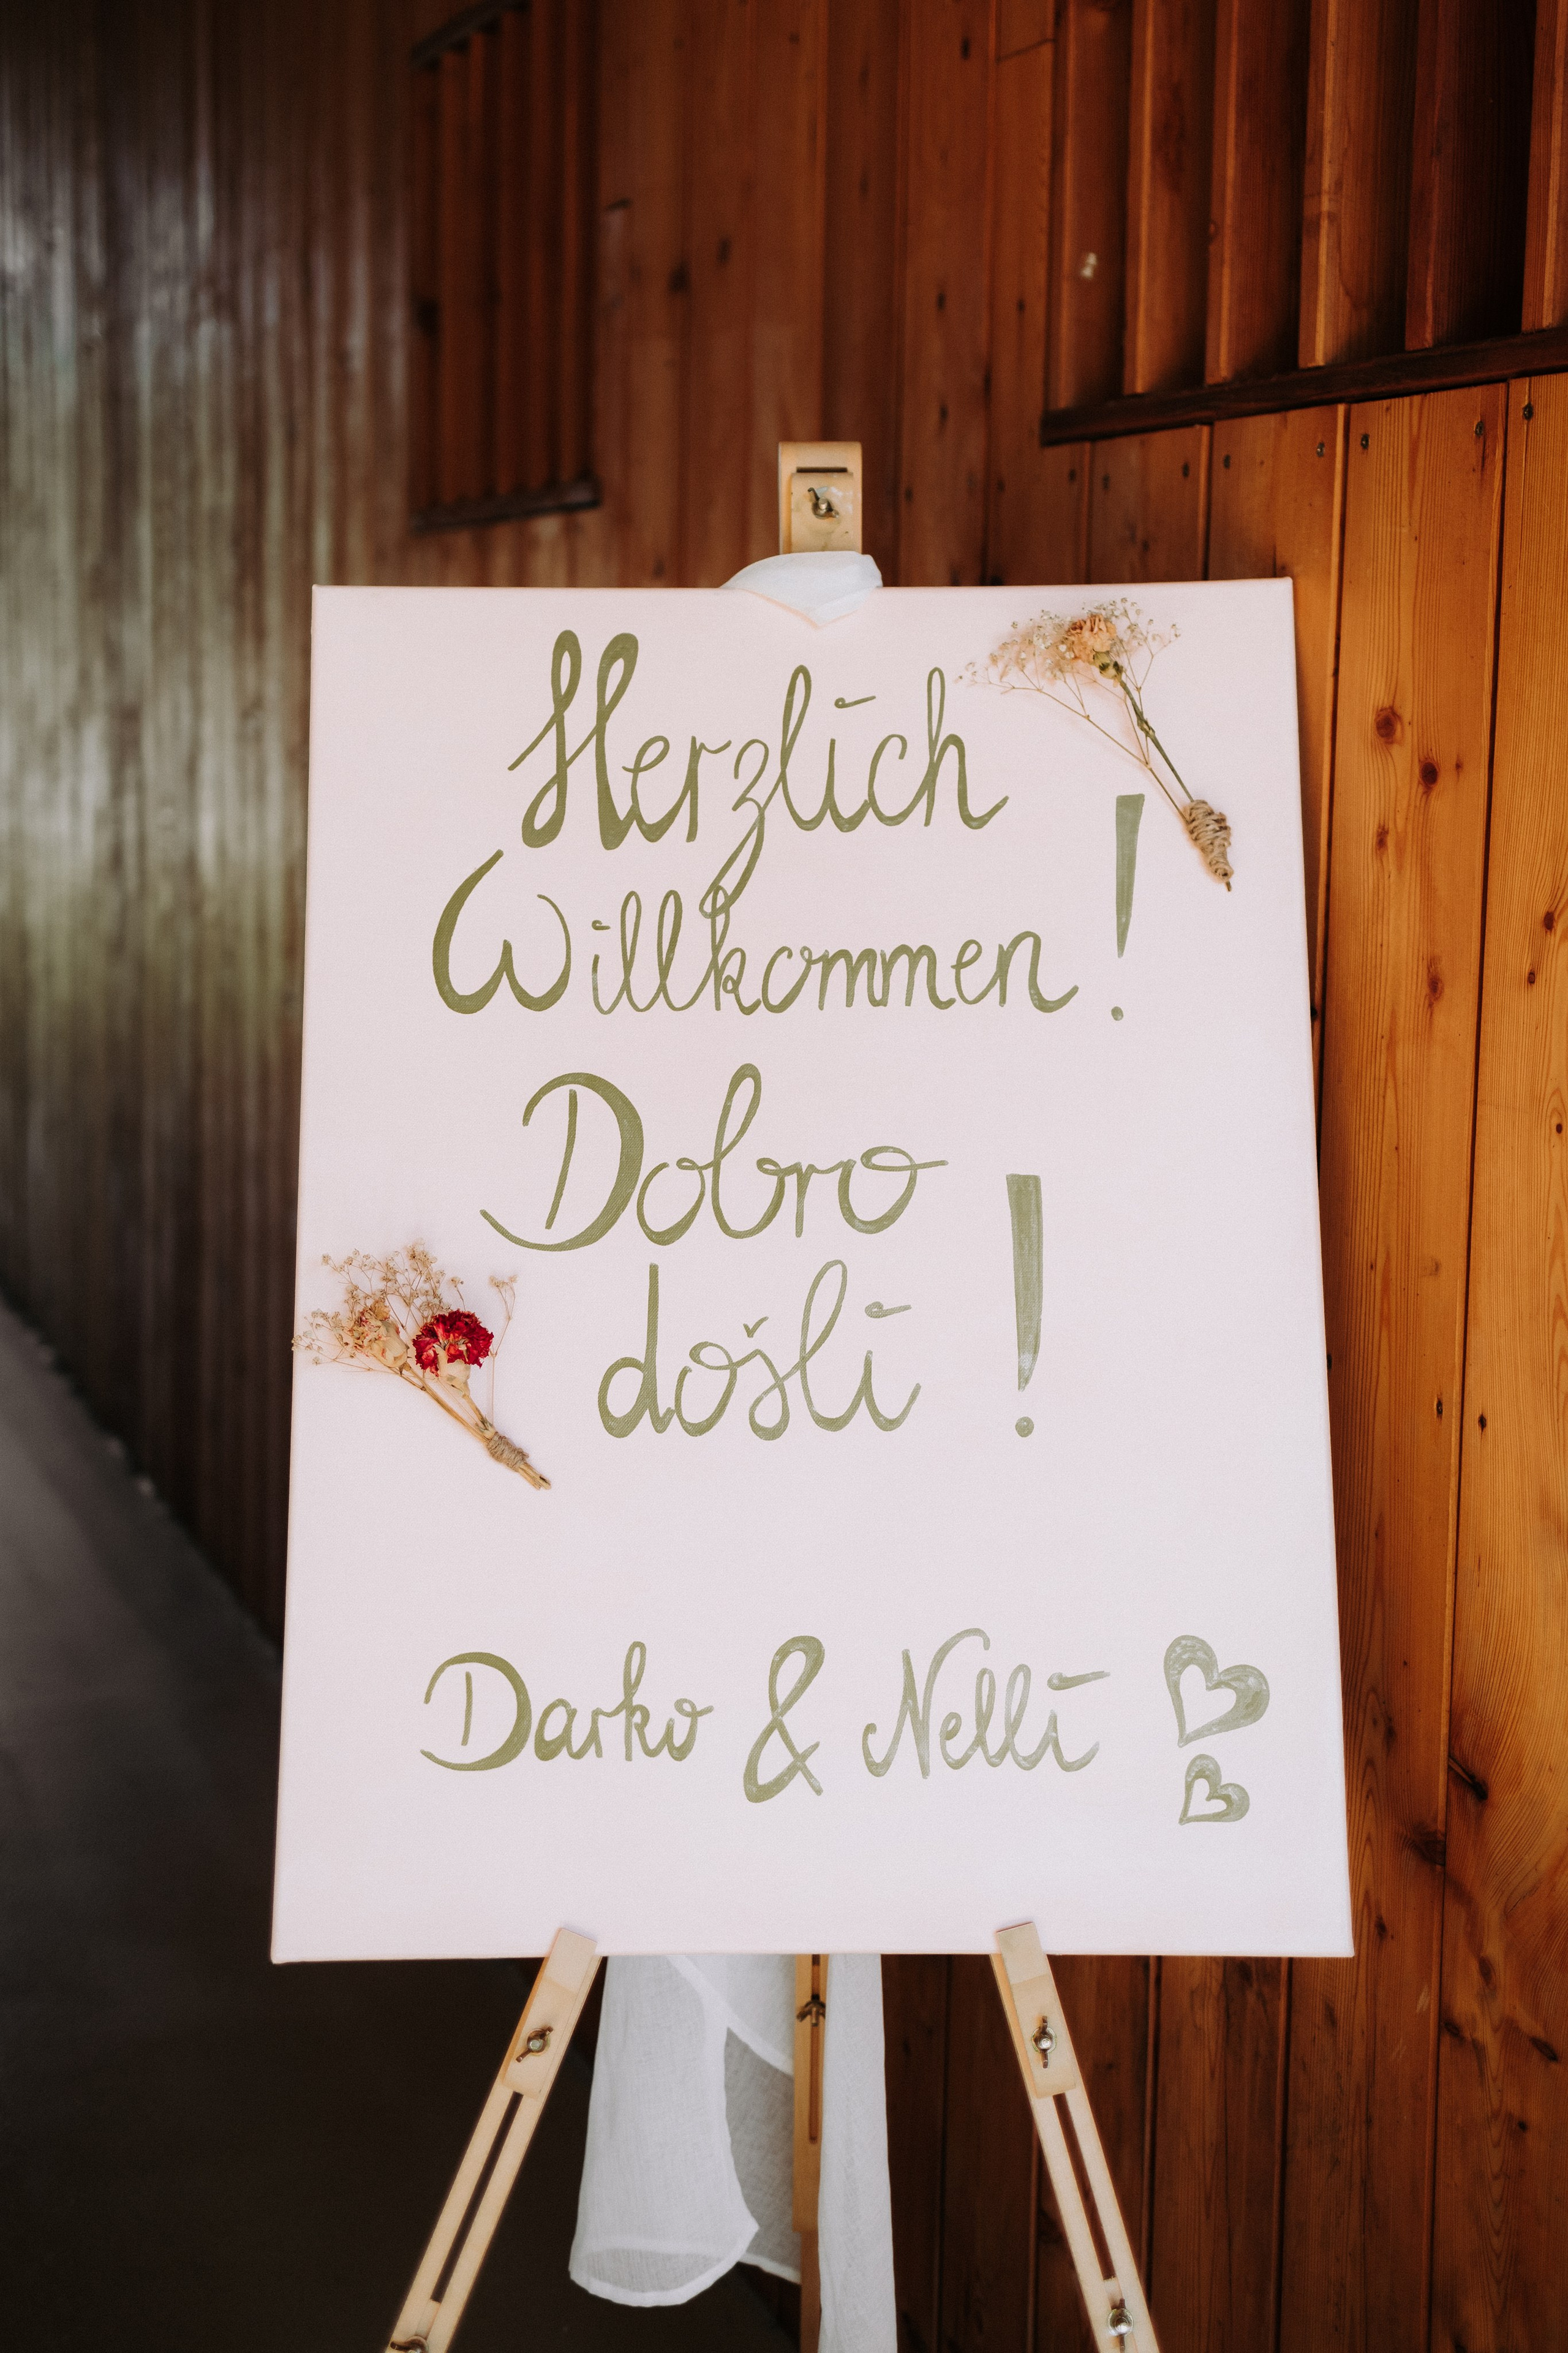 Herzlich
Willkommen!
Dobro
došli!
Darko & Nelli